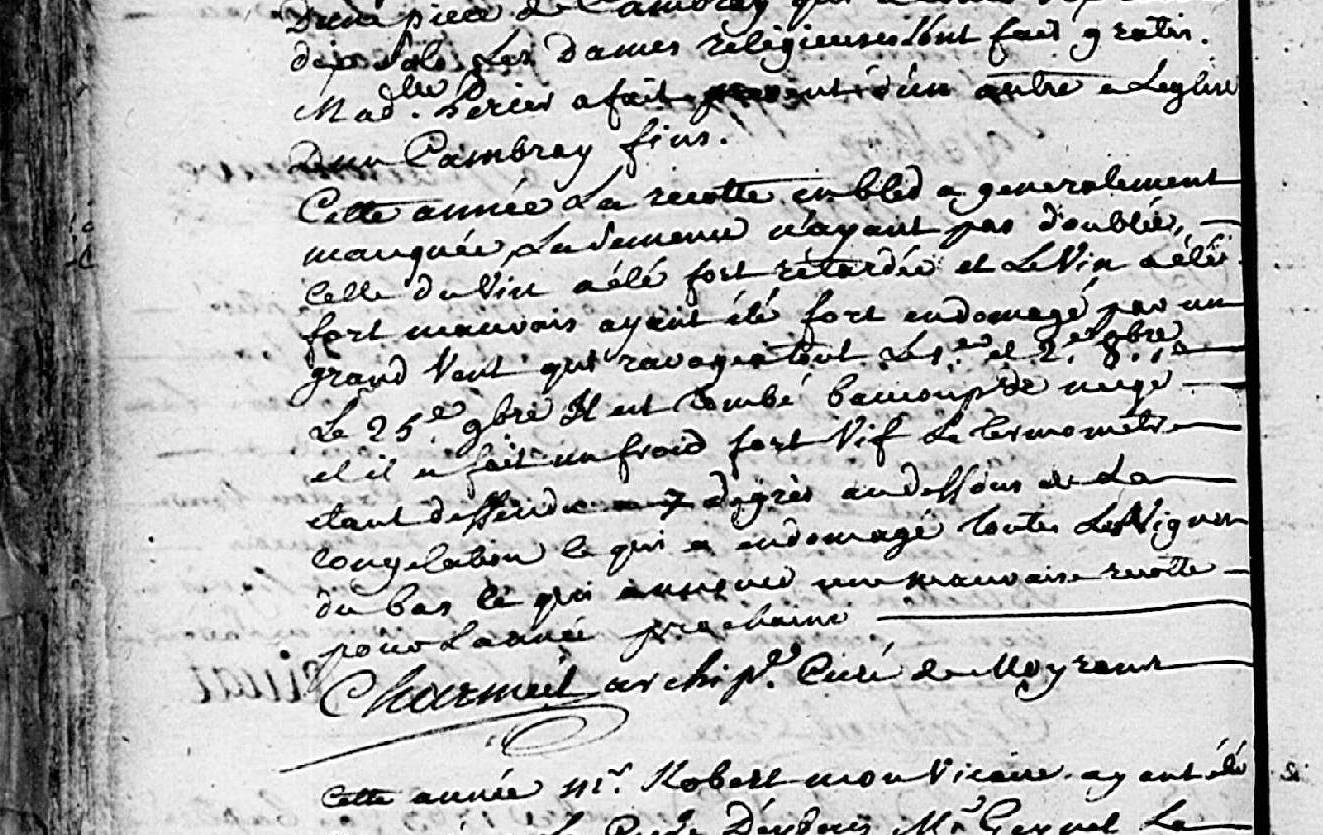 D'une piece de Cambray qui
Les Dames religieuses l'ont fait gratis.
Mad.lle Perier a fait present d'un autre a Leglise
D'un Cambray fins.
Cette année La recotte en bled a generalement
manquée, La semence n'ayant pas doublée,
Celle du Vin a élé fort rétardée et Le Vin a élé
fort mauvais ayant été fort endomagé par un
grand Vent qui ravagea tout Le 1.er et 2.e 8.bre
Le 25e 9bre Il est tombé beaucoup de neige
et il a fait un froid fort Vif Le termométre
étant dessendu a 7 dégrés au dessous de La
congelation ce qui a endomagé toutes Les Vignes
du bas ce qui annonce une mauvaise recotte
pour L'année prochaine
Charmeil archip.e Curé de Moyrenc
Cette année Mr. Robert mon Vicaire ayant été
Mr Le